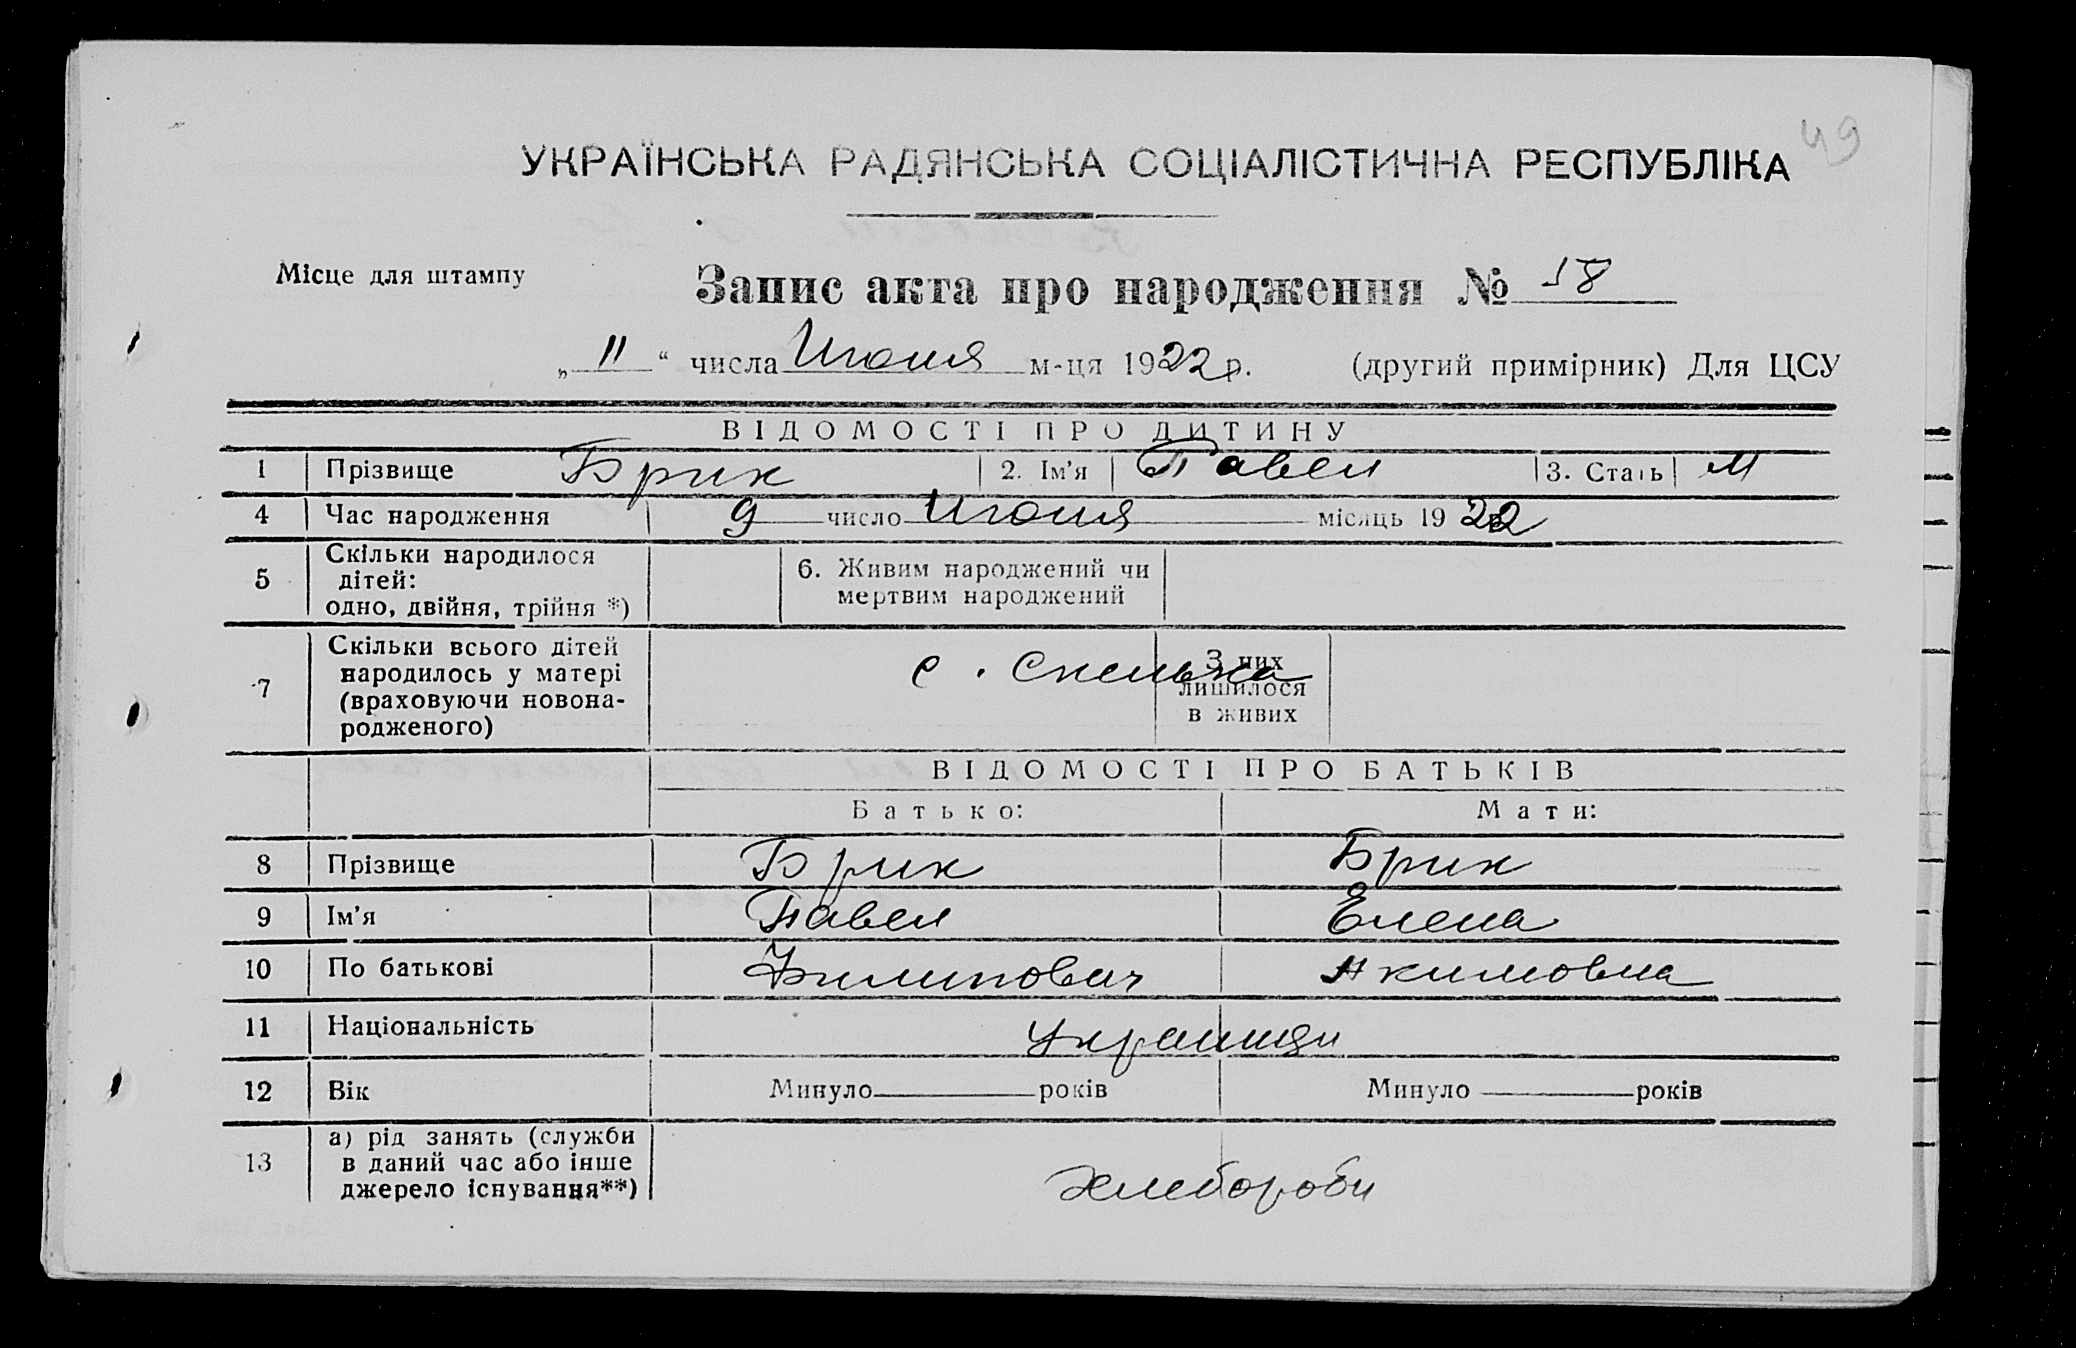 49
УКРАЇНСЬКА РАДЯНСЬКА СОЦІАЛІСТИЧНА РЕСПУБЛІКА
Місце для штампу
Запис акта про народження № 18
„ 11 “ числа Июня м-ця 1922 р. (другий примірник) Для ЦСУ
ВІДОМОСТІ ПРО ДИТИНУ
1 Прізвище Брик 2. Ім'я Павел 3. Стать М
4 Час народження 9 число Июня місяць 1922
5 Скільки народилося дітей: одно, двійня, трійня *) 6. Живим народжений чи мертвим народжений
7 Скільки всього дітей народилось у матері (враховуючи новонародженого) с. Скелька З них лишилося в живих
ВІДОМОСТІ ПРО БАТЬКІВ
Батько: Мати:
8 Прізвище Брик Брик
9 Ім'я Павел Елена
10 По батькові Филипович Акимовна
11 Національність Украинци
12 Вік Минуло років Минуло років
13 а) рід занять (служби в даний час або інше джерело існування**) Хлебороби